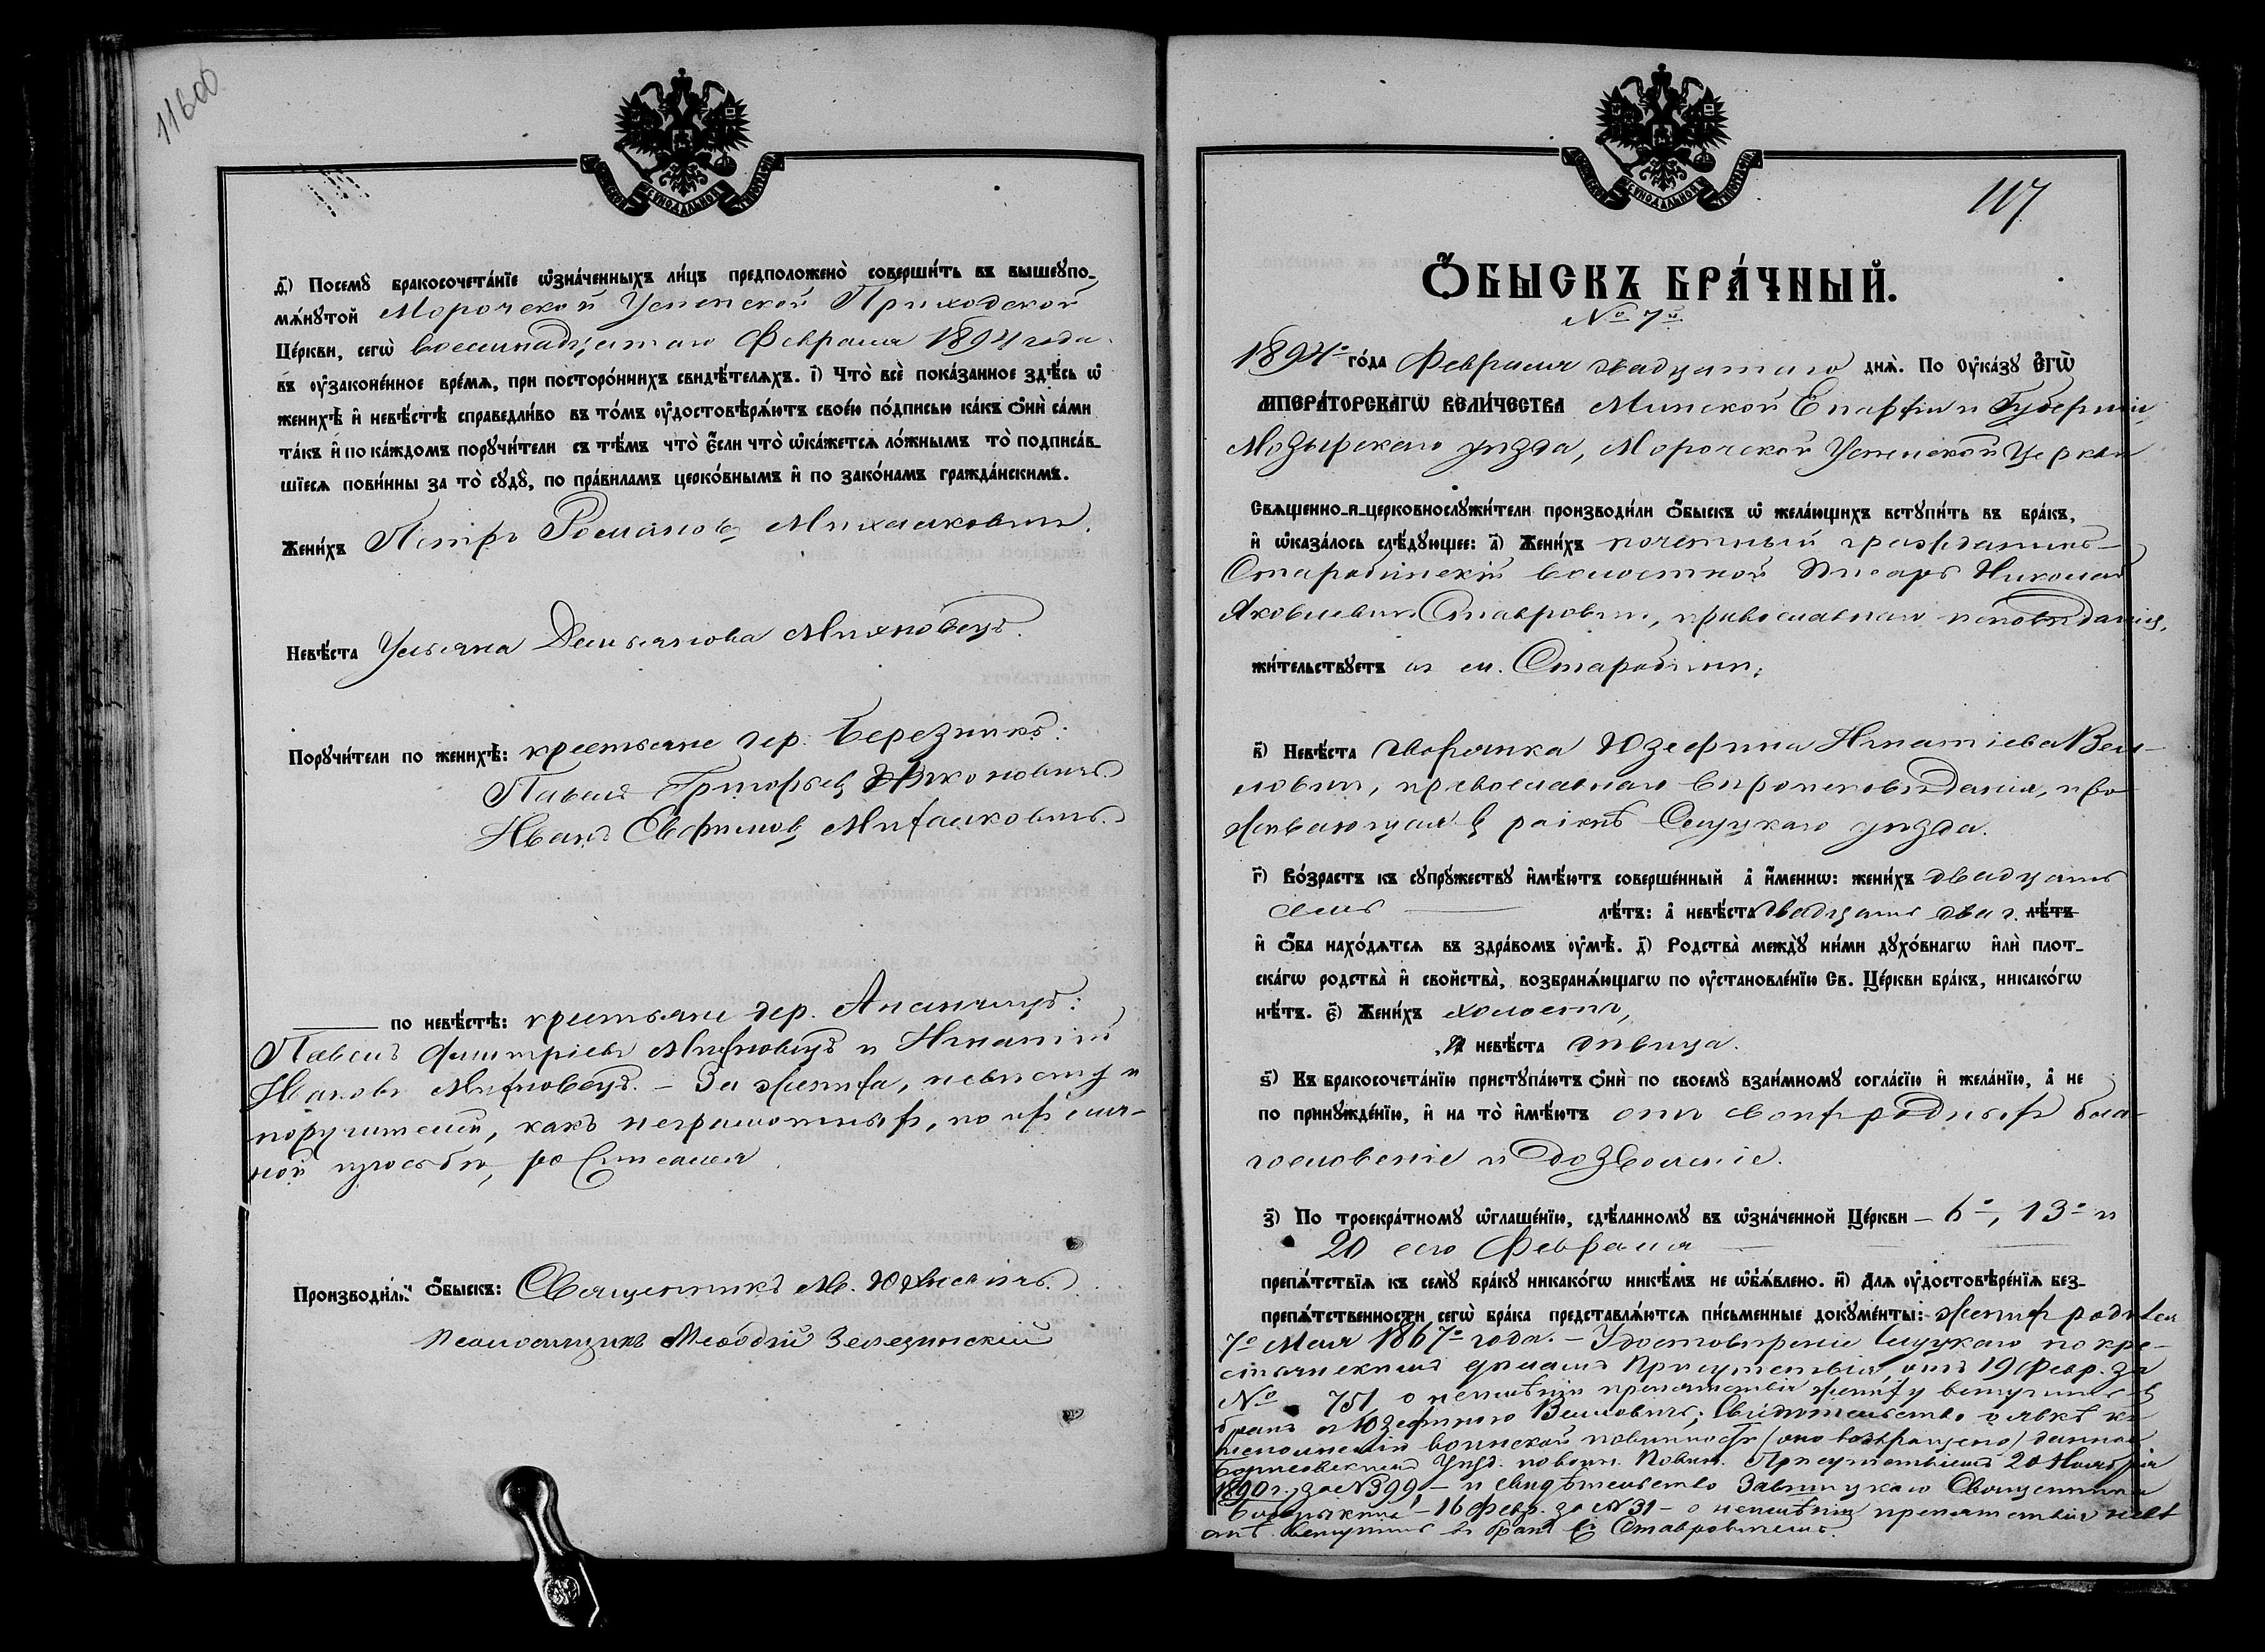 116об
МОСКОВСКОЙ СѴНОДАЛЬНОЙ ТИПОГРАФІИ
д҃) Посемꙋ̀ бракосочета́нїе ѡ҆зна́ченныхъ ли́цъ предположено̀ соверши́ть въ вышеꙋпо-
мѧ́нꙋтой Морочской Успенской Приходской
Це́ркви, сегѡ̀ восемнадцатаго Февраля 1894 года.
въ ᲂу҆законе́нное вре́мѧ, при посторо́ннихъ свидѣ́телѧхъ. і҃) Что̀ всѐ пока́занное здѣ́сь ѡ҆
женихѣ̀ и҆ невѣ́стѣ справедли́во въ то́мъ ᲂу҆достовѣрѧ́ютъ свое́ю по́дписью ка́къ ѻ҆нѝ са́ми
та́къ и҆ по ка́ждомъ порꙋчи́тели съ тѣ́мъ что̀ є҆́сли что̀ ѡ҆ка́жетсѧ ло́жнымъ то̀ подписа́в-
шїесѧ пови́нны за то̀ сꙋдꙋ̀, по пра́виламъ церко́внымъ и҆ по зако́намъ гражда́нскимъ.
Жени́хъ Петръ Романовъ Михалковичъ.
Невѣ́ста Ульяна Демьянова Михновецъ.
Порꙋчи́тели по женихѣ̀: крестьяне дер. Березникъ:
Павелъ Григорьевъ
Иванъ Евфимовъ Михалковичъ.
по невѣ́стѣ: крестьяне дер.
Павелъ Димитріевъ Михновецъ и Игнатій
Ивановъ Михновецъ. – За жениха, невѣсту и
поручителей, какъ неграмотныхъ, по ихъ лич-
ной просьбѣ, росписался
Производи́ли ѻ҆́быскъ: Священникъ М.
Псаломщикъ Меѳодій
МОСКОВСКОЙ СѴНОДАЛЬНОЙ ТИПОГРАФІИ
117
Ѻ҆́БЫСКЪ БРА́ЧНЫЙ.
№ 7й
1894го го́да Февраля двадцатаго днѧ̀. По ᲂу҆ка́зꙋ Є҆гѡ̀
И҆мпера́торскагѡ Вели́чества Минской Епархіи и Губерніи,
Мозырскаго уѣзда, Морочской Успенской Церкви
Свѧщенно-и-церковнослꙋжи́тели производи́ли ѻ҆́быскъ ѡ҆ жела́ющихъ встꙋпи́ть въ бра́къ,
и҆ ѡ҆каза́лось слѣ́дꙋющее: а҃) Жени́хъ почетный гражданинъ –
Старобинскій волостной Писарь Николай
Яковлевичъ Ставровичъ, православнаго исповѣданія,
жи́тельствꙋетъ въ м. Старобинѣ;
в҃) Невѣ́ста дворянка Юзефина Игнатіева Вел-
ловичъ, православнаго вѣроисповѣданія, про-
живающая въ Слуцкаго уѣзда.
г҃) Во́зрастъ къ сꙋпрꙋ́жествꙋ и҆мѣ́ютъ соверше́нный а҆̀ и҆́менно: жени́хъ двадцать
семь лѣ́тъ: а҆̀ невѣ́ста двадцать два г. лѣ́тъ
и҆ ѻ҆́ба нахо́дѧтсѧ въ здра́вомъ ᲂу҆мѣ̀. д҃) Родства̀ междꙋ̀ ни́ми дꙋхо́внагѡ и҆лѝ плот-
ска́гѡ родства̀ и҆ сво́йства̀, возбранѧ́ющагѡ по ᲂу҆становле́нїю Св. Це́ркви бра́къ, никако́гѡ
нѣ́тъ. є҃) Жени́хъ холостъ,
а҆ невѣ́ста дѣвица.
ѕ҃) Къ бракосочета́нїю пристꙋпа́ютъ ѻ҆нѝ по своемꙋ̀ взаи́мномꙋ согла́сїю и҆ жела́нїю, а҆̀ не
по принꙋжде́нїю, и҆ на то̀ и҆мѣ́ютъ отъ своихъ родныхъ бла-
гословеніе и дозволеніе.
з҃) По троекра́тномꙋ ѡ҆глаше́нїю, сдѣ́ланномꙋ въ ѡ҆зна́ченной Це́ркви – 6го, 13го и
20 сего Февраля
препѧ́тствїѧ къ семꙋ̀ бра́кꙋ никако́гѡ никѣ́мъ не ѡ҆б̾ѧ́влено. и҃) Длѧ ᲂу҆достовѣре́нїѧ без-
препѧ́тственности сегѡ̀ бра́ка представлѧ́ютсѧ пи́сьменные докꙋме́нты: женихъ родился
7го Мая 1867го года. – Удостовѣреніе Слуцкаго по кре-
стьянскимъ дѣламъ Присутствія, отъ 19 Февр. за
№ 751, о неимѣніи препятствія жениху вступить въ
бракъ съ Юзефиною Велловичъ; Свидѣтельство о явкѣ къ
исполненію воинской повинности (оно возвращено) данное
Борисовскимъ Уѣзд. по воин. Повин. Присутствіемъ 20 Ноября
1890 г. за № 399 – и свидѣтельство Завшицкаго Священника
– 16 Февр. за № 31 – о неимѣніи препятствія невѣ-
стѣ вступить въ бракъ съ Ставровичемъ.